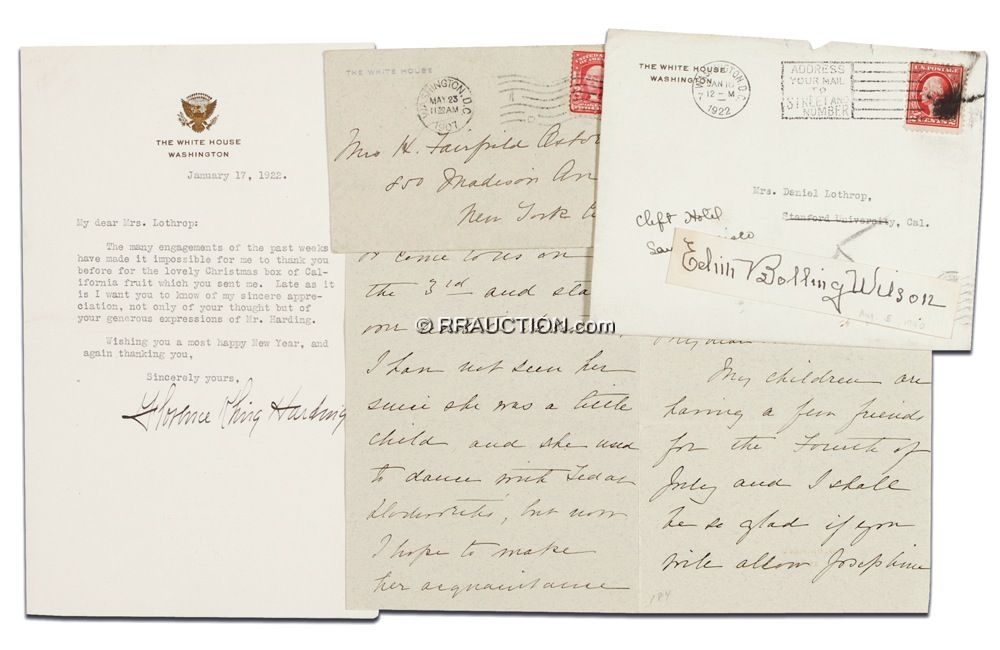 THE WHITE HOUSE
WASHINGTON
January 17, 1922.
My dear Mrs. Lothrop:
The many engagements of the past weeks
have made it impossible for me to thank you
before for the lovely Christmas box of Cal-
ifornia fruit which you sent me. Late as it
is I want you to know of my sincere appre-
ciation, not only of your thought but of
your generous expressions of Mr. Harding.
Wishing you a most happy New Year, and
again thanking you,
Sincerely yours,
Florence Kling Harding
THE WHITE HOUSE
WASHINGTON, D.C.
MAY 23
11 30 AM
1907
Mrs H. Fairfield Osbor
850 Madison Av
New York C
or come to us on
the 3rd and sta
our
I have not seen her
since she was a little
child and she used
to dance with Teddy
at Dodsworth's, but now
I hope to make
her acquaintance
THE WHITE HOUSE
WASHINGTON
WASHINGTON, D.C.
JAN 18
12-M
1922
ADDRESS
YOUR MAIL
TO
STREET AND
NUMBER
U.S. POSTAGE
2 CENTS 2
Mrs. Daniel Lothrop,
Stanford University, Cal.
Clift Hotel
San
Edith Bolling Wilson
My dear
My children are
having a few friends
for the Fourth of
July and I shall
be so glad if you
will allow Josephine
184
© RRAUCTION.com